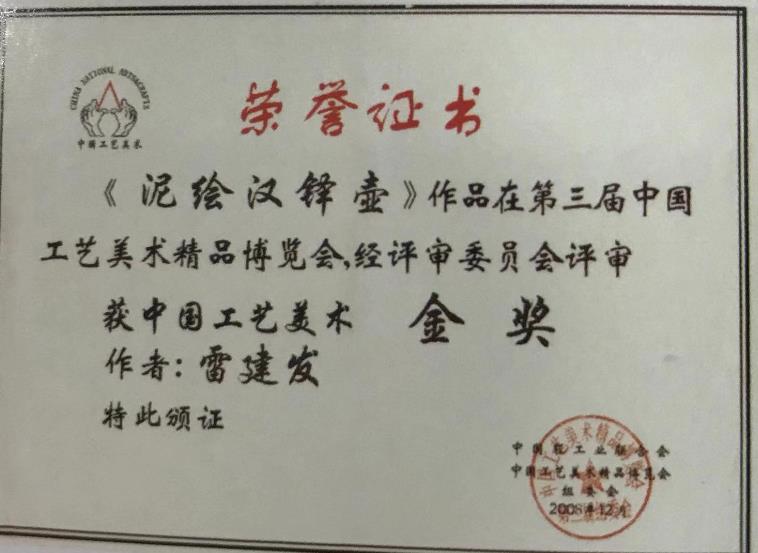 CHINA NATIONAL ARTS&CRAFTS
中国工艺美术
荣誉证书
《泥绘汉铎壶》作品在第三届中国
工艺美术精品博览会,经评审委员会评审
获中国工艺美术 金奖
作者:雷建发
特此颁证
中国轻工业联合会
中国工艺美术精品博览会
组委会
2008年12月